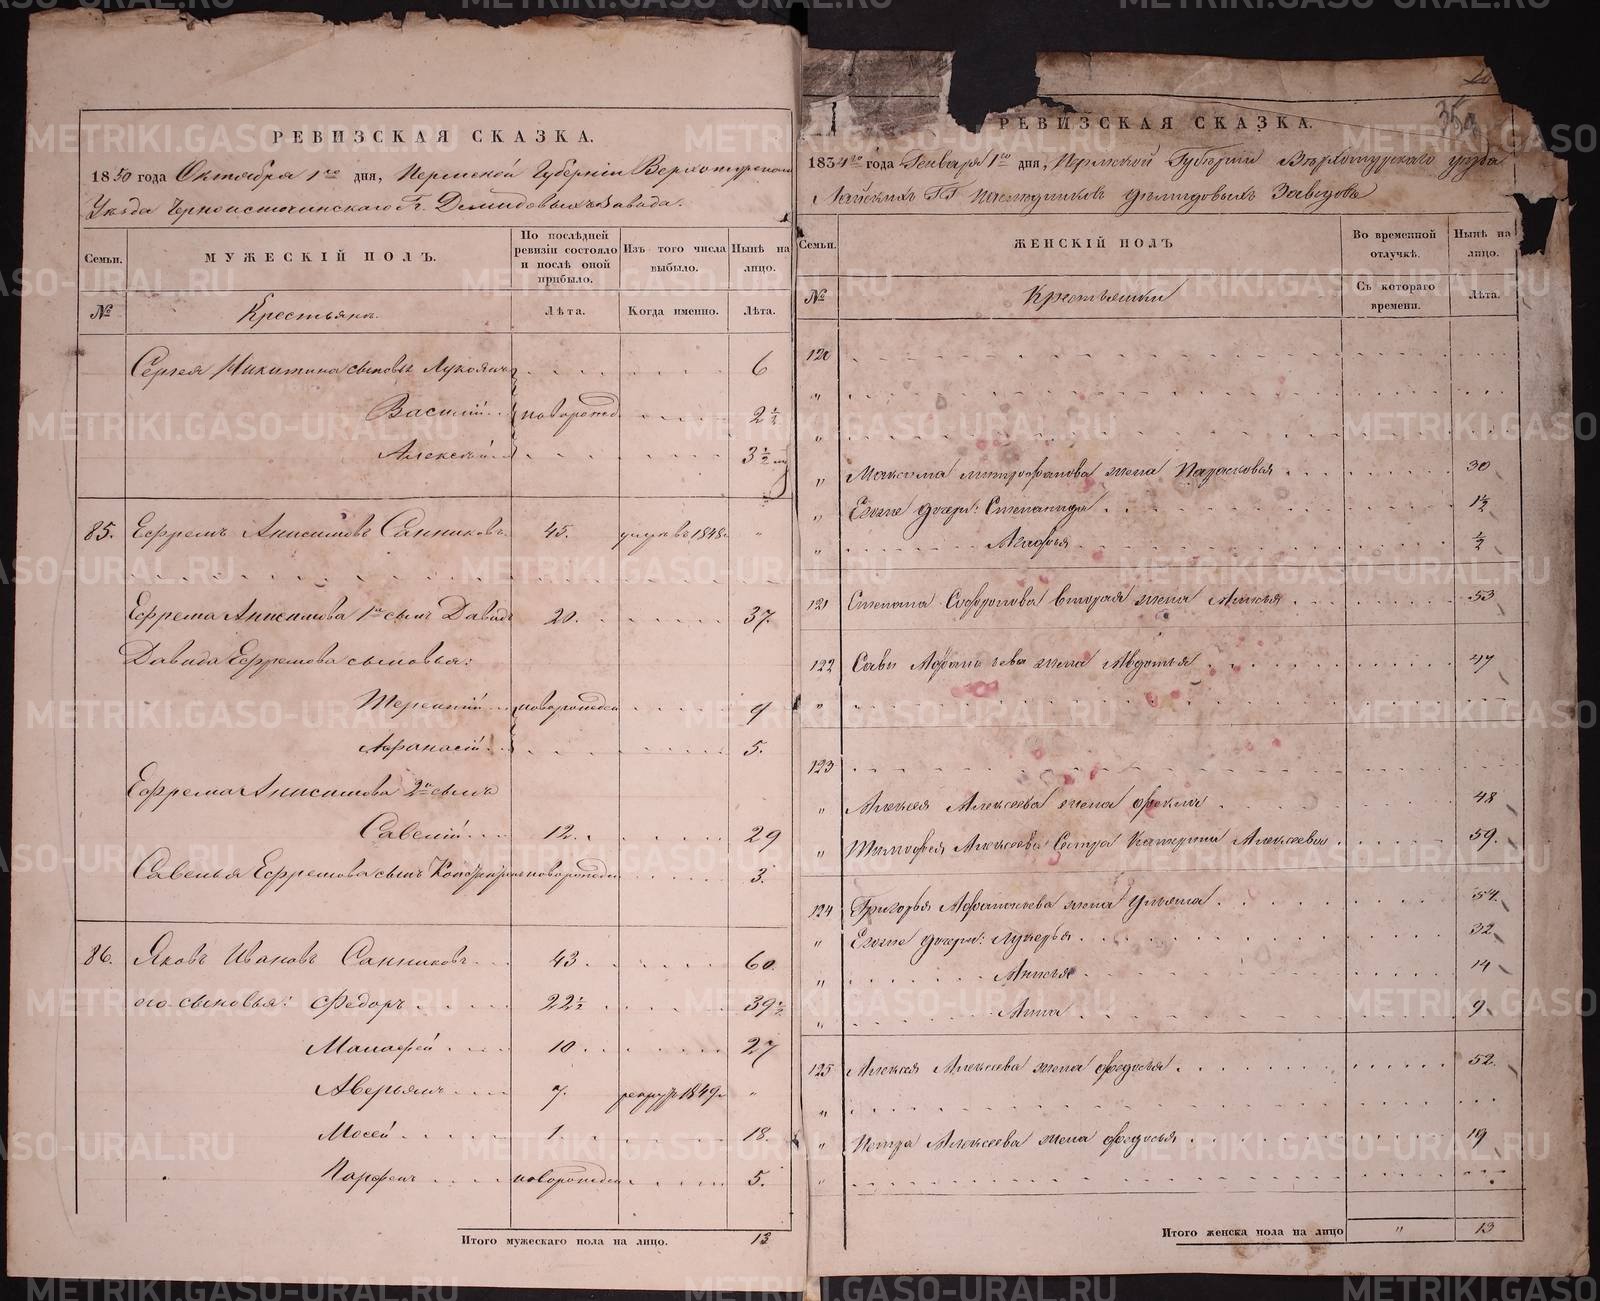 РЕВИЗСКАЯ СКАЗКА.
1850 года Октября 1го дня, Пермской Губерніи Верхотурскаго
Уѣзда Черноисточинскаго Гг. Демидовыхъ Завода.
Семьи.
МУЖЕСКІЙ ПОЛЪ.
По послѣдней ревизіи состояло и послѣ оной прибыло.
Изъ того числа выбыло.
Нынѣ на лицо.
№
Крестьянъ.
Лѣта.
Когда именно.
Лѣта.
Сергея Никитина сыновья Лукоянъ 6
Василій новорожд 2½
Алексѣй 3½
85. Ефремъ Анисимовъ Санниковъ 45. 1848 "
Ефрема Анисимова 1й сынъ Давидъ 20. 37.
Давида Ефремова сыновья:
Терентій новорожден 9
Афанасій 5.
Ефрема Анисимова 2й сынъ
Савелій 12. 29
Савелья Ефремова сынъ новорожден 3.
86. Яковъ Ивановъ Санниковъ 43. 60.
его сыновья: Федоръ 22½ 39½
Манафей 10. 27
Аверьянъ 7. рекрут 1849 "
Мосей 1. 18.
Парфенъ новорожден 5.
Итого мужескаго пола на лицо. 13
35
РЕВИЗСКАЯ СКАЗКА.
1834го года Генваря 1го дня, Пермской Губерніи Верхотурскаго уезда
Лайскихъ ГГ Наследниковъ Демидовыхъ Заводовъ
Семьи.
ЖЕНСКІЙ ПОЛЪ
Во временной отлучкѣ.
Нынѣ на лицо.
№
Крестьянки
Съ котораго времени.
Лѣта.
120
"
"
" Максима Митрофанова жена Парасковья 30
" Егоже дочери: Степанида 1½
" Агафья ½
121 Степана Софронова вторая жена Анисья 53
122 Савы жена Авдотья 47
"
123
" Алексея Алексеева жена Фекла 48
" Тимофея Алексеева Сестра Катерина Алексеевна 59.
124 Григорья Афанасьева жена Ульяна 54.
" Егоже дочери: Лукерья 32
" Анисья 14
" Анна 9
125 Алексея Алексеева жена Федосья 52.
"
" Петра Алексеева жена Федосья 19
"
Итого женска пола на лицо " 13
METRIKI.GASO-URAL.RU